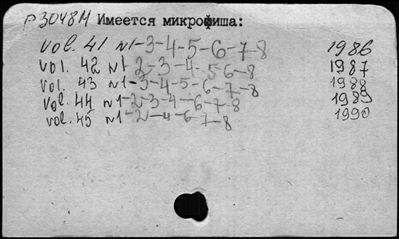 P3048M Имеется микрофиша:
vol. 41 №1-3-4-5-6-7-8 1986
vol. 42 №1-2-3-4-5 6-8 1987
vol. 43 №1-3-4-5-6-7-8 1988
vol. 44 №1-2-3-4-6-7-8 1989
vol. 45 №1-2-4-6-7-8 1990